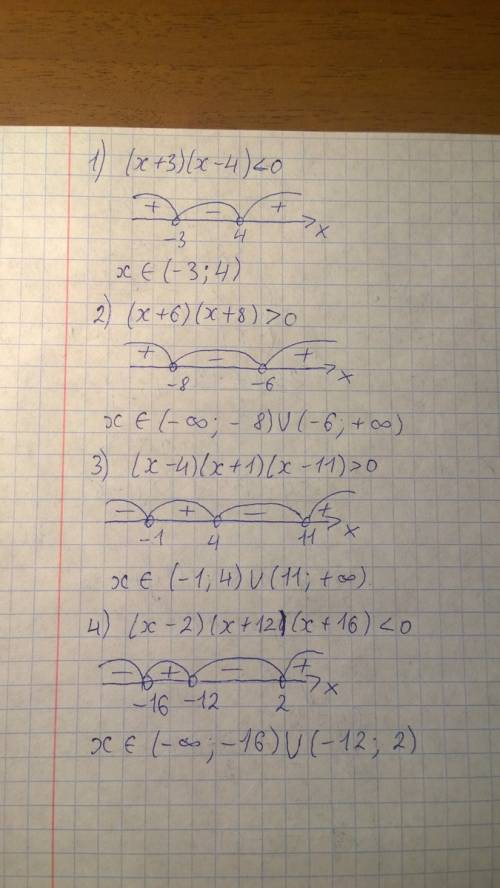 1) (x+3)(x-4)<0
+ - +
-3 4 x
x ∈ (-3; 4)
2) (x+6)(x+8)>0
+ - +
-8 -6 x
x ∈ (-∞; -8)∪(-6; +∞)
3) (x-4)(x+1)(x-11)>0
- + - +
-1 4 11 x
x ∈ (-1; 4)∪(11; +∞)
4) (x-2)(x+12)(x+16)<0
- + - +
-16 -12 2 x
x ∈ (-∞; -16)∪(-12; 2)